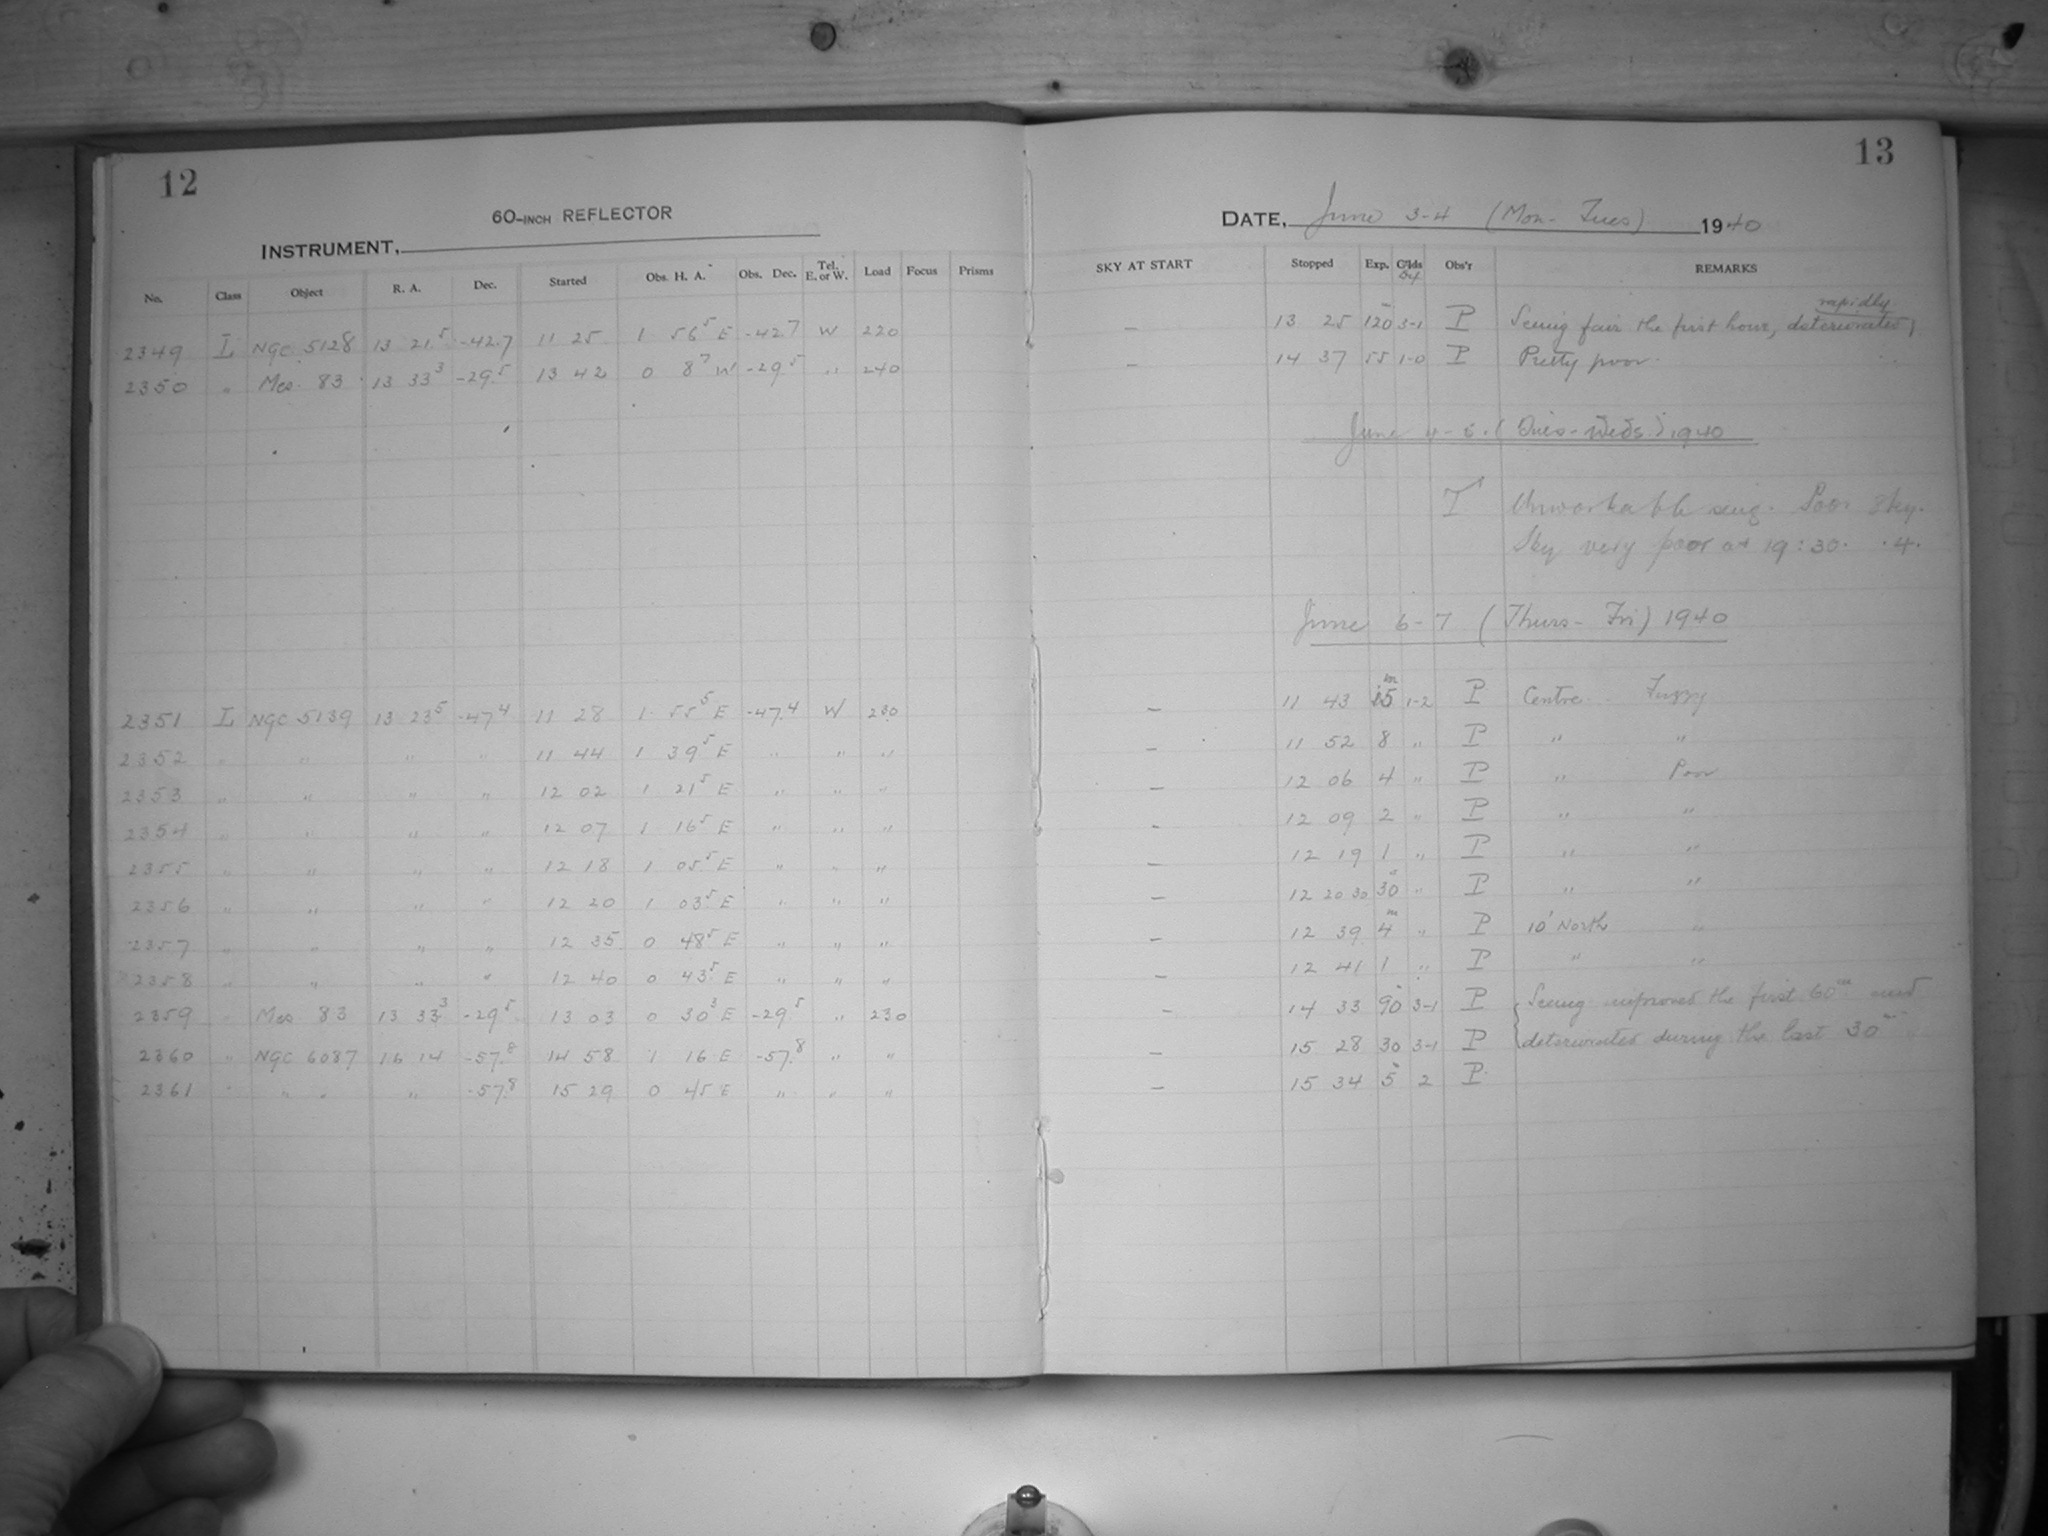 12
60-INCH REFLECTOR
INSTRUMENT,
No. Class Object R. A. Dec. Started Obs. H. A. Obs. Dec. Tel. E. or W. Load Focus Prisms
2349 L NGC 5128 13 21⁵ -42.7 11 25 1 56⁵ E -42.7 W 220
2350 " Mes. 83 13 33³ -29.⁵ 13 42 0 8⁷ W -29.⁵ " 240
2351 L NGC 5139 13 23⁵ -47⁴ 11 28 1 55⁵ E -47.4 W 230
2352 " " " " 11 44 1 39⁵ E " " "
2353 " " " " 12 02 1 21⁵ E " " "
2354 " " " " 12 07 1 16⁵ E " " "
2355 " " " " 12 18 1 05⁵ E " " "
2356 " " " " 12 20 1 03⁵ E " " "
2357 " " " " 12 35 0 48⁵ E " " "
2358 " " " " 12 40 0 43⁵ E " " "
2359 " Mes 83 13 33³ -29⁵ 13 03 0 30³ E -29⁵ " 230
2360 " NGC 6087 16 14 -57.⁸ 14 58 1 16 E -57.⁸ " "
2361 " " " " -57.⁸ 15 29 0 45 E " " "
13
DATE, June 3-4 (Mon- Tues) 1940
SKY AT START Stopped Exp. C'lds Obs'r REMARKS
rapidly
– 13 25 120 3-1 P Seeing fair the first hour, deteriorated
– 14 37 55 1-0 P Pretty poor.
June 4-5. (Tues-Weds) 1940
T Unworkable seeing. Poor sky.
Sky very poor at 19:30. .4.
June 6-7 (Thurs- Fri) 1940
– 11 43 15ᵐ 1-2 P Centre Fuzzy
– 11 52 8 " P " "
– 12 06 4 " P " Poor
– 12 09 2 " P " "
– 12 19 1 " P " "
– 12 20 30 30ˢ " P " "
– 12 39 4ᵐ " P 10' North "
– 12 41 1 " P " "
– 14 33 90 3-1 P Seeing improved the first 60ᵐ and
– 15 28 30 3-1 P deteriorated during the last 30ᵐ
– 15 34 5 2 P